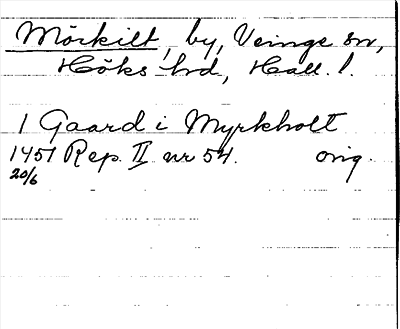 Mörkilt, by, Veinge sn,
Höks hd, Hall. l.
1 Gaard i Myrkholt
1451 Rep. II nr 54. orig.
20/6